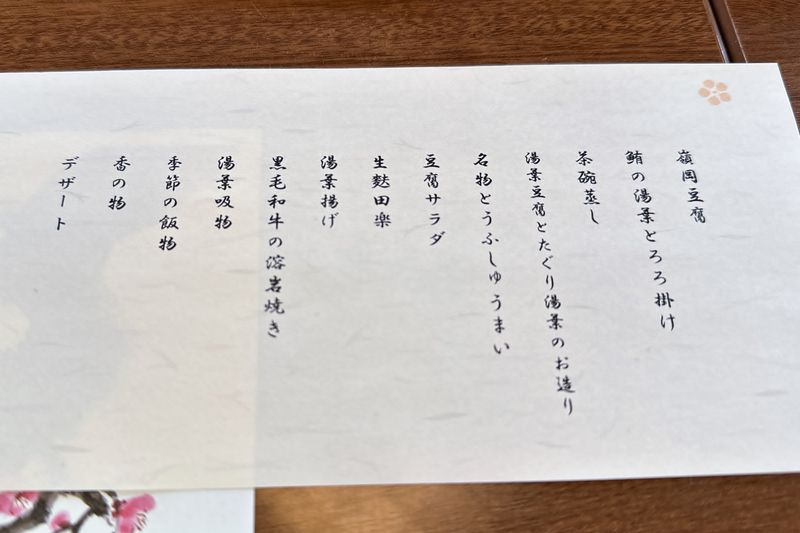 嶺岡豆腐
鮪の湯葉とろろ掛け
茶碗蒸し
湯葉豆腐とたぐり湯葉のお造り
名物とうふしゅうまい
豆腐サラダ
生麩田楽
湯葉揚げ
黒毛和牛の溶岩焼き
湯葉吸物
季節の飯物
香の物
デザート